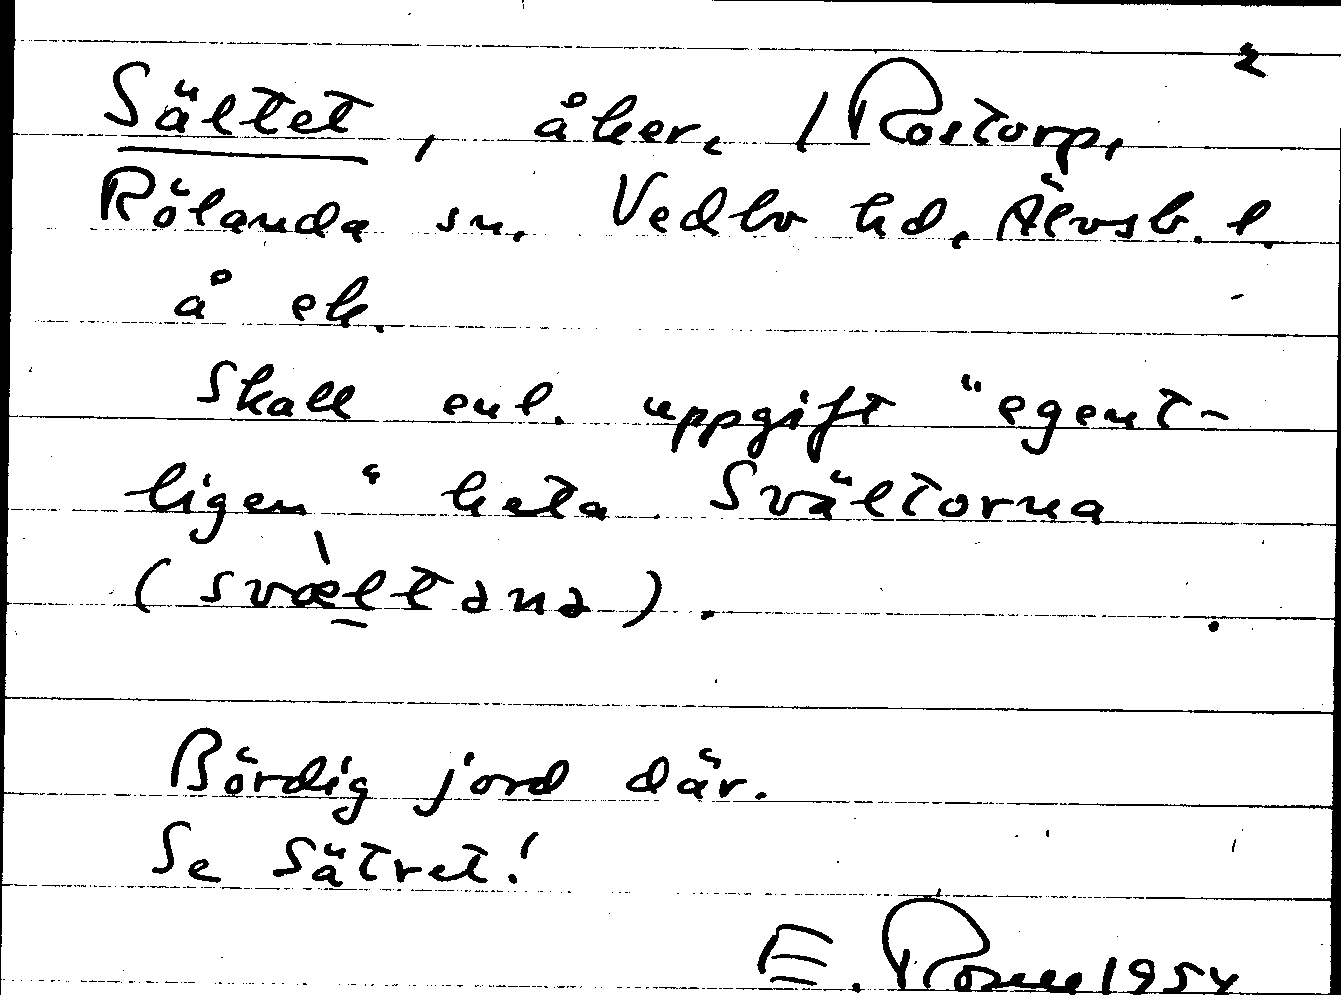 2
Sältet, åker, / Rostorp,
Rölanda sn, Vedbo hd, Älvsb. l.
å ek.
Skall enl. uppgift "egent-
ligen" heta Svältorna
(svæ̀ltana).
Bördig jord där.
Se Sätret!
E. 1954